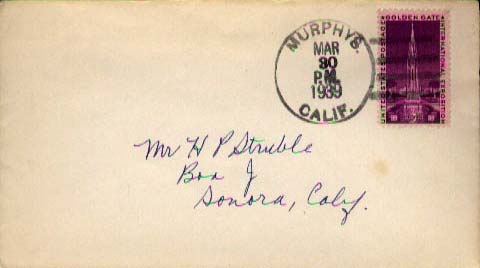 MURPHYS.
MAR
30
P.M.
1939
CALIF.
GOLDEN GATE
INTERNATIONAL EXPOSITION
UNITED STATES POSTAGE
Mr H P Struble
Box J
Sonora, Calif.